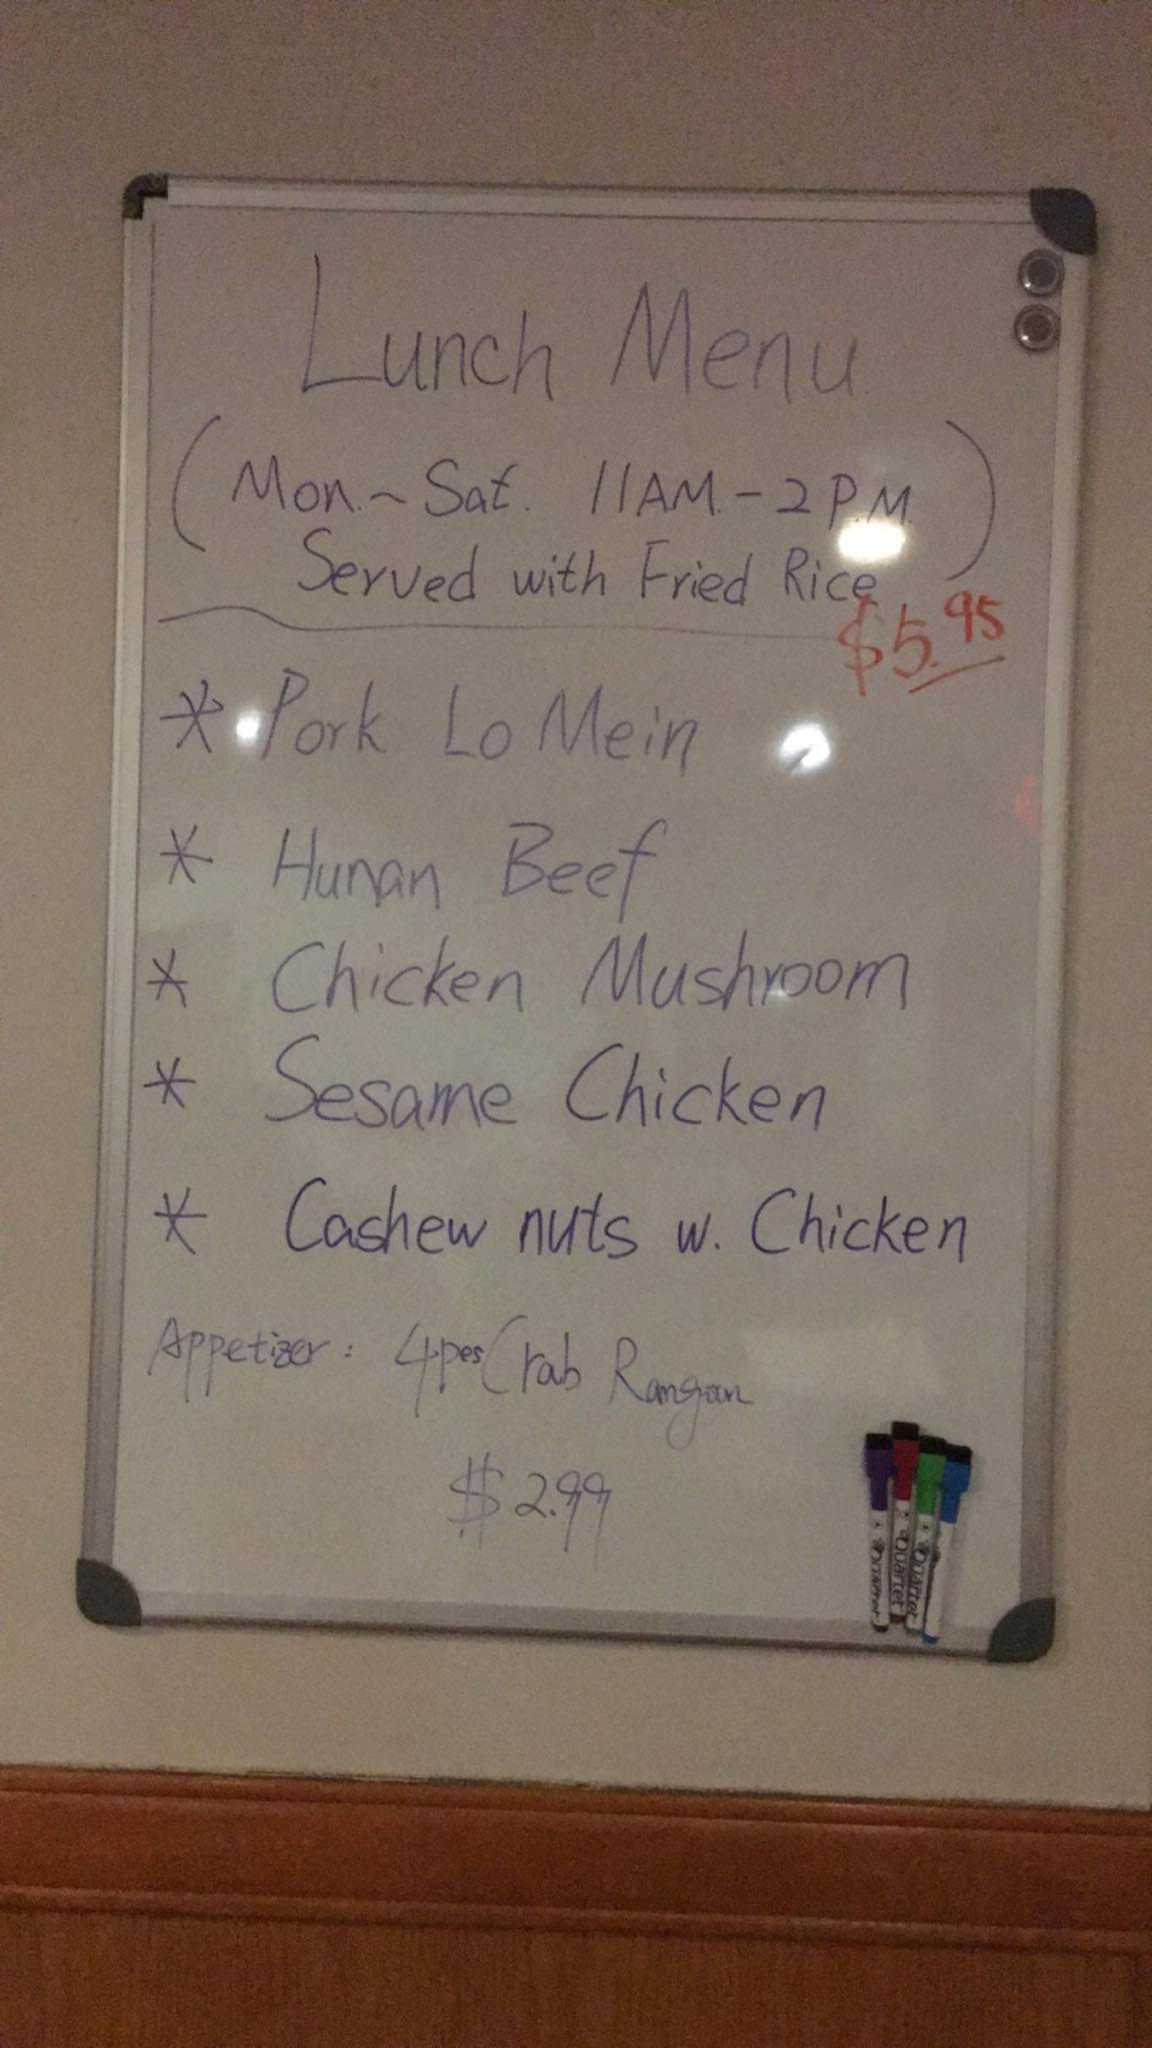 Lunch Menu
(Mon.~Sat. 11AM.-2P.M.
Served with Fried Rice)
$5.95
* Pork Lo Mein
* Hunan Beef
* Chicken Mushroom
* Sesame Chicken
* Cashew nuts w. Chicken
Appetizer: 4pcs Crab Rangoon
$2.99
Quartet
Quartet
Quartet